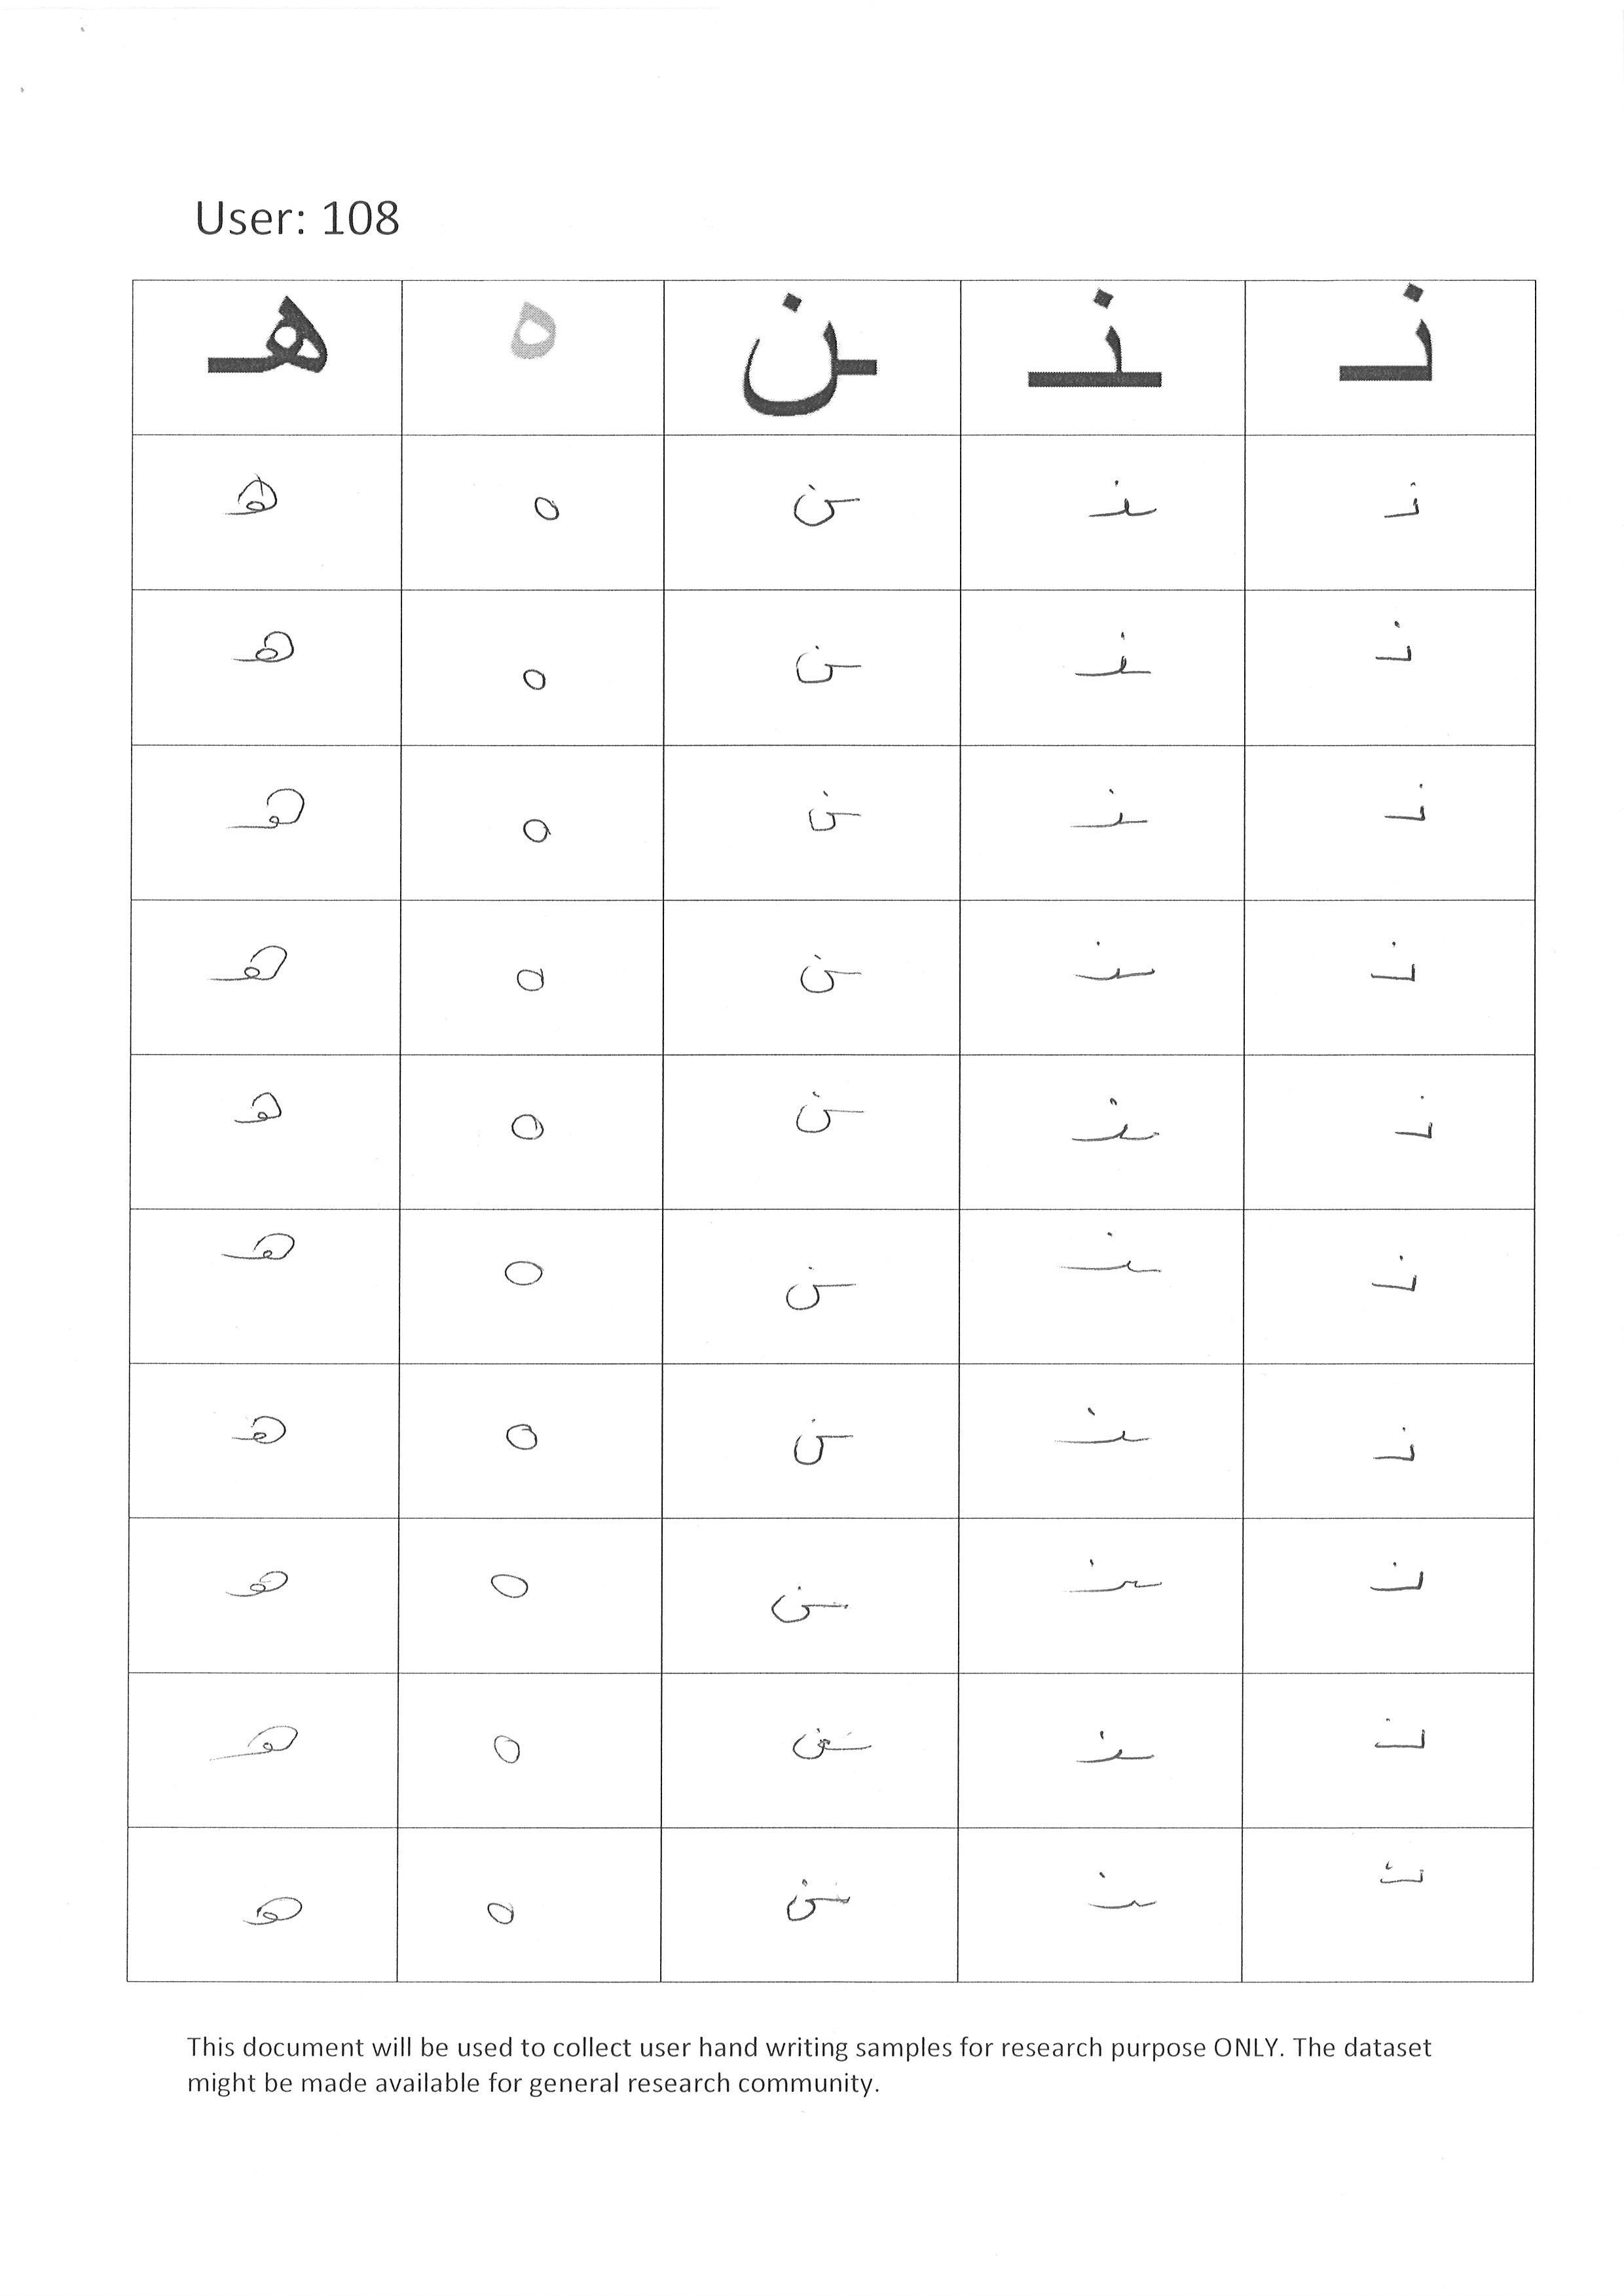 User: 108
نـ ـنـ ـن ه هـ
نـ ـنـ ـن ه هـ
نـ ـنـ ـن ه هـ
نـ ـنـ ـن ه هـ
نـ ـنـ ـن ه هـ
نـ ـنـ ـن ه هـ
نـ ـنـ ـن ه هـ
نـ ـنـ ـن ه هـ
نـ ـنـ ـن ه هـ
نـ ـنـ ـن ه هـ
نـ ـنـ ـن ه هـ
This document will be used to collect user hand writing samples for research purpose ONLY. The dataset
might be made available for general research community.